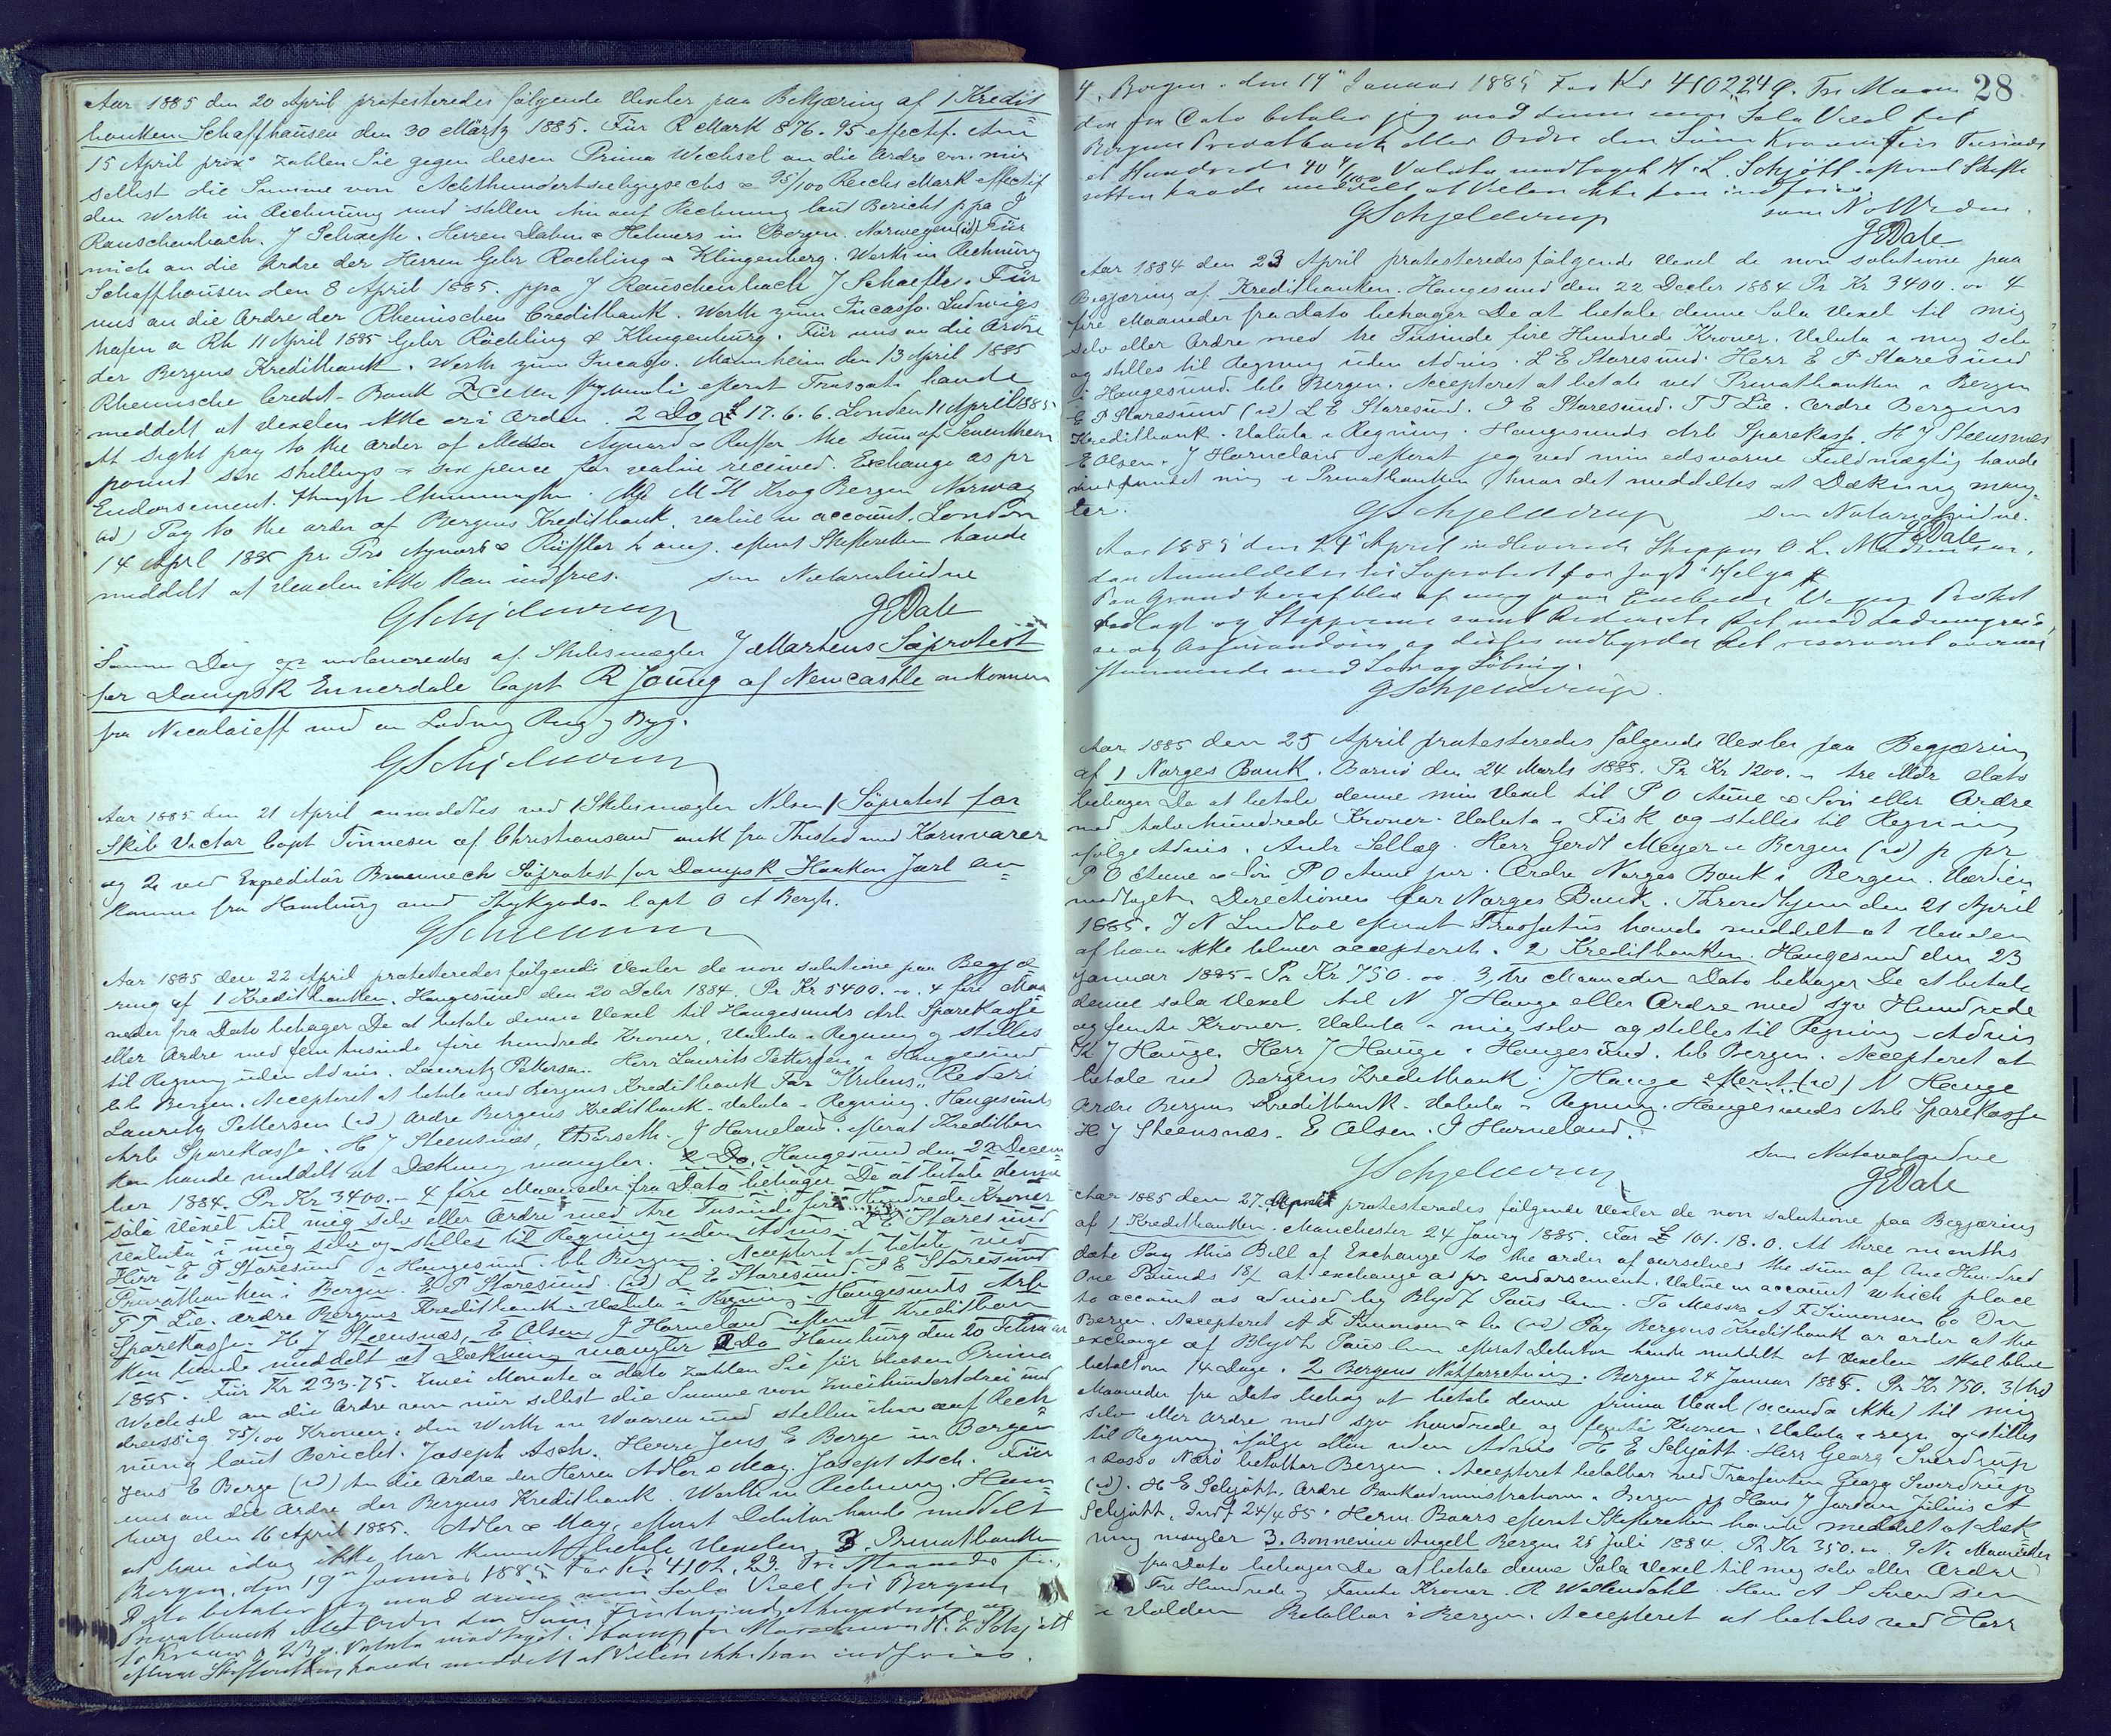 Aar 1885 den 20 April protesteredes følgende Vexler paa Begjæring af 1 Kredit
banken Schaffhausen den 30 Märtz 1885. Für R Mark 876.95 effectif. Am
15 April prox° zahlen Sie gegen diesen Prima Wechsel an die Ordre von mir
selbst die Summe von Achthundertsiebzigsechs & 95/100 Reichs Mark effectif
den Werth in Rechnung und stellen ihn auf Rechnung laut Bericht ppa J
Rauschenbach. J Schaefle. Herren Dahm & Helmers in Bergen. Norwegen (id) Für
mich an die Ordre der Herren Gebr Röchling & Klingenberg. Werth in Rechnung
Schaffhausen den 8 April 1885. ppa J Rauschenbach J Schaefle. Für
uns an die Ordre der Rheinischen Creditbank. Werth zum Incasso. Ludwigs
hafen a Rh 11 April 1885 Gebr Röchling & Klingenburg. Für uns an die Ordre
der Bergens Kreditbank. Werth zum Incasso. Mannheim den 13 April 1885
Rheinische Credit-Bank efterat Trassaten havde
meddelt at Vexelen ikke er i Orden. 2 Do £ 17.6.6. London 11 April 1885
At Sight pay to the order of Messr Aynard & Ruffer the sum of Seventheen
pound six shillings & six pence for value received. Exchange as pr
Endorsement. M K Krog Bergen Norway
(id) Pay to the order of Bergens Kreditbank. value in account. London
14 April 1885 pr Pro Aynard & Rüffer efterat Skifteretten havde
meddelt at Vexelen ikke kan indfries. som Notarialvidne
GSchjelderup JEDale
Samme Dag indleveredes af Skibsmægler J Martens Søprotest
for Dampsk Ennerdale Capt R Joung af Newcastle ankommen
fra Nicolaieff med en Ladning Rug og Byg.
GSchjelderup
Aar 1885 den 21 April anmeldtes ved 1 Skibsmægler Nilsen 1 Søprotest for
Skib Victor Capt Tønnesen af Christiansand ank fra Thisted med Kornvarer
og 2 ved Expeditør Brunnech Søprotest for Dampsk Haakon Jarl an-
kommen fra Hamburg med Stykgods. Capt O A Bergh.
GSchjelderup
Aar 1885 den 22 April protesteredes følgende Vexler de non solutione paa Begjæ
ring af 1 Kreditbanken. Haugesund den 20 Debr 1884. Pr Kr 5400. 4 fire Maa
neder fra Dato behager De at betale denne Vexel til Haugesunds Arb Sparekasse
eller Ordre med fem tusinde fire hundrede Kroner. Valuta i Regning og stilles
til Regning uden Advis. Lauritz Pettersen. Herr Laurits Pettersen i Haugesund
btb Bergen. Accepteret at betale ved Bergens Kreditbank For "Urilens" Rederi
Lauritz Pettersen (id) Ordre Bergens Kreditbank. Valuta i Regning. Haugesunds
Arb Sparekasse. H J Steensnæs, J Harneland. efterat Kreditban
ken havde meddelt at Dækning mangler. 2 Do. Haugesund den 22 Decem
ber 1884. Pr Kr 3400.- 4 fire Maaneder fra Dato behager De at betale denne
Sola Vexel til mig selv eller Ordre med tre Tusinde fire Hundrede Kroner
valuta i mig selv og stilles til Regning uden Advis. L E Staresund
Herr E P Staresund i Haugesund. btb Bergen. Accepteret at betale ved
Privatbanken i Bergen. E P Staresund. (id) L E Staresund, I E Staresund
T T Lie. Ordre Bergens Kreditbank. Valuta i Regning. Haugesunds Arb
Sparekasse. H J Steensnæs, E Olsen J Harneland efterat Kreditban
ken havde meddelt at Dækning mangler 2 Do Hamburg den 20 Februar
1885. Für Kr 233.75. zwei Monate a dato zahlen Sie für diesen Prima
Wechsel an die Ordre von mir selbst die Summe von zweihundertdrei und
dreissig 75/100 Kronen: den Werth in Waaren und stellen ihn auf Rech
nung laut Bericht. Joseph Asch. Herrn Jens E Berge in Bergen
Jens E Berge (id) An die Ordre der Herren Adler & May. Joseph Asch. Für
uns an die Ordre der Bergens Kreditbank. Werth in Rechnung. Ham
burg den 16 April 1885. Adler & May, efterat Debitor havde meddelt
at han idag ikke har kunnet betale Vexelen. 3. Privatbanken
Bergen, den 19 Januar 1885 For Kr 4102.23. Tre Maaneder fra
Dato betaler jeg mod denne min Sola Vexel til Bergens
Privatbank eller Ordre den Sum Firetusindethundrede og
to Kroner & 23 Ø. Valuta modtaget i H. E Schjøtt
efterat Skifteretten havde meddelt at Vexlen ikke kan indfries.
28
4. Bergen den 19 Januar 1885 For Kr 4102.24 Ø. Tre Maane
der fra Dato betaler jeg mod denne min Sola Vexel til
Bergens Privatbank eller Ordre den Sum Kroner Fire Tusinde
et Hundrede Valuta modtaget H. E. Schjøtt efterat Skifte
retten havde meddelt at Vexlen ikke kan indfries.
GSchjelderup som NotVidne.
JEDale
Aar 1884 den 23 April protesteredes følgende Vexel de non solutione paa
Begjæring af Kreditbanken. Haugesund den 22 Decbr 1884 Pr Kr 3400. 4
fire Maaneder fra Dato behager De at betale denne Sola Vexel til mig
selv eller Ordre med tre Tusinde fire Hundrede Kroner. Valuta i mig selv
og stilles til Regning uden Advis. L E Staresund. Herr E P Staresund
i Haugesund. btb Bergen. Accepteret at betale ved Privatbanken i Bergen
E P Staresund (id) L E Staresund. I E Staresund. T T Lie. Ordre Bergens
Kreditbank. Valuta i Regning. Haugesunds Arb Sparekasse. H J Steensnæs
E Olsen. J Harneland efterat jeg ved min edsvorne Fuldmægtig havde
indfundet mig i Privatbanken hvor det meddeltes at Dækning mang-
ler. GSchjelderup som Notarialvidne.
JEDale
Aar 1885 den 24 April indleverede Skipper O. L.
den Anmeldelse til Søprotest for Jagt "Helga"
Paa Grund heraf blev af mig paa Embeds Vegne Protest
nedlagt og Skipperens samt Rederiets Ret mod Ladningseie
re og Assurandører og deres vedbørlige Ret reserveret overens
stemmende med Lov og Søbrug.
GSchjelderup.
Aar 1885 den 25 April protesteredes følgende Vexler paa Begjæring
af 1 Norges Bank. den 24 Marts 1885. Pr Kr 1200. tre Mdr Dato
behager De at betale denne min Vexel til P O Aune & Søn eller Ordre
med tolv hundrede Kroner. Valuta i Fisk og stilles til Regning
ifølge Advis. Antr Sellæg. Herr Gerdt Meyer i Bergen (id) p pr
P O Aune & Søn P O Aune jur. Ordre Norges Bank i Bergen. Værdien
modtaget. Directionen for Norges Bank. Throndhjem den 21 April
1885. J N Lindboe efterat Trassatus havde meddelt at Vexelen
af ham ikke bliver accepteret. 2 Kreditbanken. Haugesund den 23
Januar 1885. Pr Kr. 750. 3, tre Maaneder Dato behager De at betale
denne sola Vexel til N J Hauge eller Ordre med syv Hundrede
og femti Kroner. Valuta i mig selv og stilles til Regning Advis
J Hauge. Herr J Hauge i Haugesund. btb Bergen. Accepteret at
betale ved Bergens Kreditbank. J Hauge efterat (id) N Hauge
Ordre Bergens Kreditbank. Valuta i Regning. Haugesunds Arb Sparekasse
H J Steensnæs. E Olsen. J Harneland.
GSchjelderup som Notarialvidne
JEDale
Aar 1885 den 27. April protesteredes følgende Vexler de non solutione paa Begjæring
af 1 Kreditbanken. Manchester 24 Jany 1885. For £ 101.18.0. At three months
date Pay this Bill of Exchange to the order of ourselves the sum of One Hundred
One Pounds 18/ at exchange as pr endorsement. Value in account which place
to account as advised by Blydt Paus. To Messrs A F Simonsen & Co
Bergen. Accepteret A F Simonsen & Co (id) Pay Bergens Kreditbank or order at the
exchange of Blydt Paus efterat Debitor havde meddelt at Vexelen skal blive
betalt om 14 Dage. 2 Bergens Notforretning. Bergen 24 Januar 1885. Pr Kr 750. 3 (tre)
Maaneder fra Dato behag at betale denne prima Vexel (secunda ikke) til mig
selv eller Ordre med syv hundrede og femti Kroner. Valuta i regn og stilles
til Regning ifølge eller uden Advis H E Schjøtt. Herr Georg Sverdrup
i Nærø betalbar Bergen. Accepteret betalbar ved Trassenten Georg Sverdrup
(id). H E Schjøtt. Ordre Bankadministrationen i Bergen pp Hans J Jordan Julius A
Schjøtt. Indf 24/4 85. Herm. Baars efterat Skifteretten havde meddelt at Dæk
ning mangler 3. Bonnevie Angell Bergen 25 Juli 1884. Pr Kr. 350. 9 Ni Maaneder
fra Dato behager De at betale denne Sola Vexel til mig selv eller Ordre
Tre Hundrede og Femti Kroner. R Wallendahl. Herr A S Svendsen
i Valden Betalbar i Bergen. Accepteret at betales ved Herr